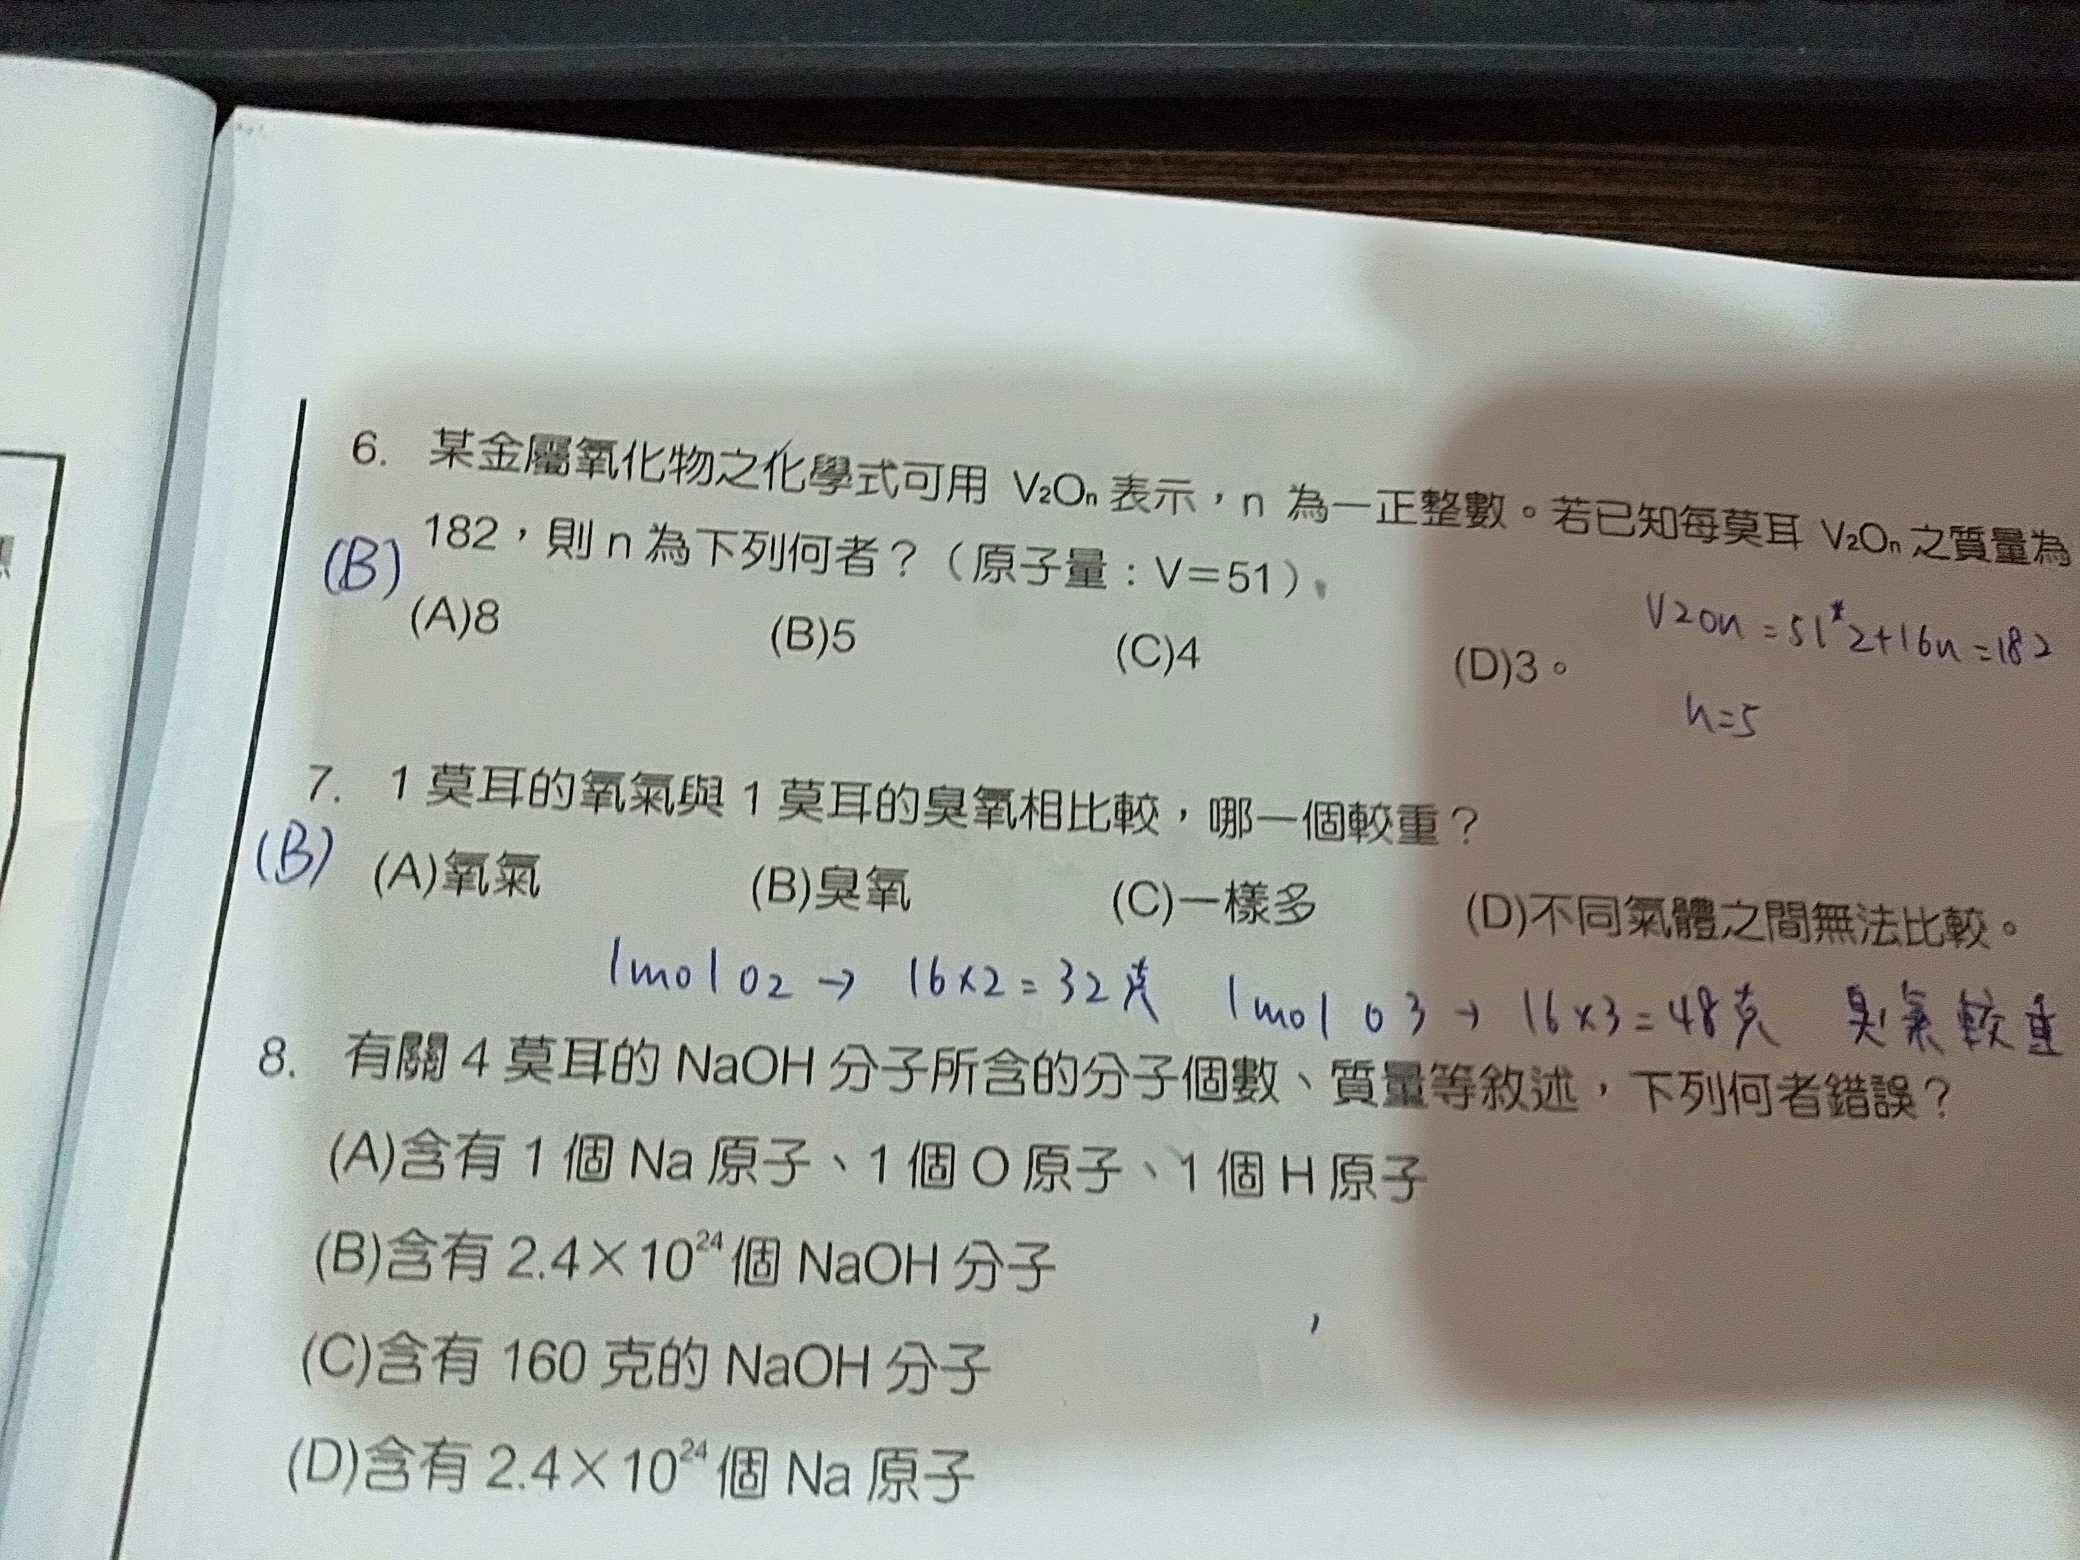 6. 某金屬氧化物之化學式可用 V₂Oₙ 表示，n 為一正整數。若已知每莫耳 V₂Oₙ 之質量為
(B) 182，則 n 為下列何者？（原子量：V＝51）。
(A)8 (B)5 (C)4 (D)3。
V2On = 51*2+16n=182
n=5
7. 1 莫耳的氧氣與 1 莫耳的臭氧相比較，哪一個較重？
(B) (A)氧氣 (B)臭氧 (C)一樣多 (D)不同氣體之間無法比較。
1mol O2 → 16×2=32克 1mol O3 → 16×3=48克 臭氧較重
8. 有關 4 莫耳的 NaOH 分子所含的分子個數、質量等敘述，下列何者錯誤？
(A)含有 1 個 Na 原子、1 個 O 原子、1 個 H 原子
(B)含有 2.4×10²⁴ 個 NaOH 分子
(C)含有 160 克的 NaOH 分子
(D)含有 2.4×10²⁴ 個 Na 原子